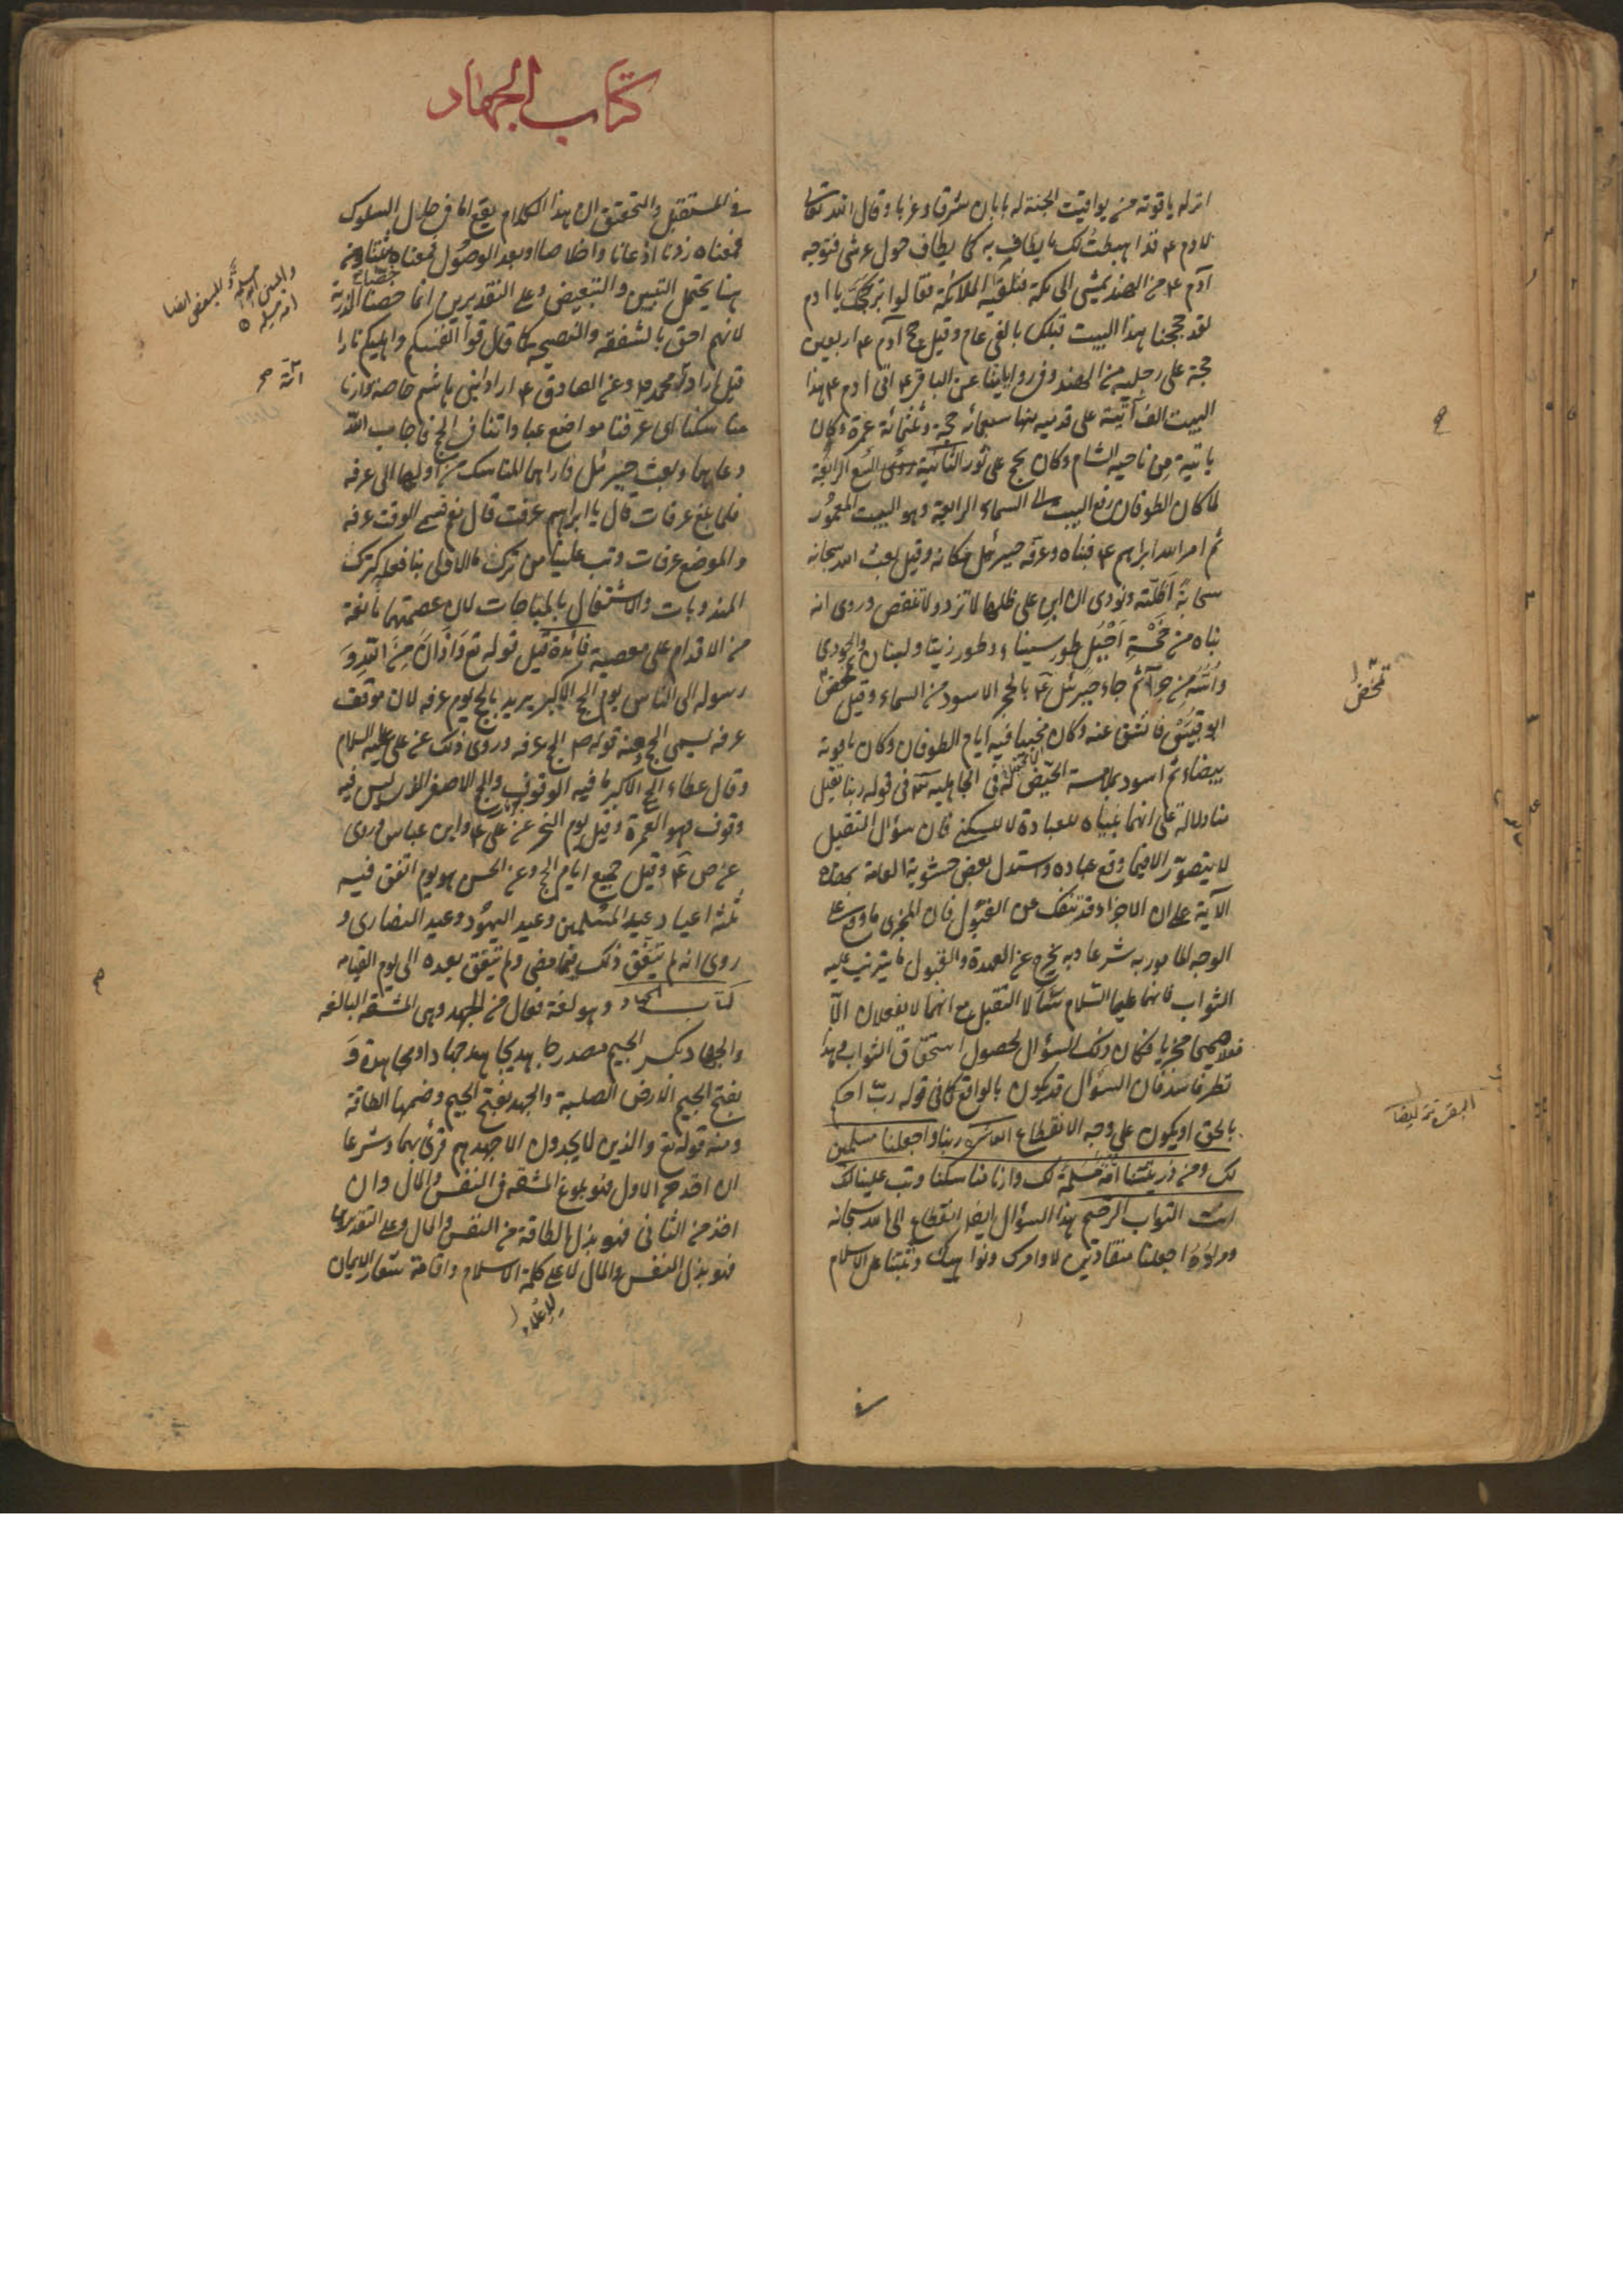 انزله ياقوتة من يواقيت الجنة له بابان شرقا وغربا وقال الله تعالى
لادم ع قد اهبطت لك ما يطاف به كما يطاف حول عرشى فتوجه
آدم ع من الهند يمشى الى مكة فتلقته الملائكة فقالوا بر حجك يا ادم
لقد حججنا هذا البيت قبلك بالفى عام وقيل حج آدم ع اربعين
حجة على رجليه من الهند وفى رواياتنا عن الباقر ع اتى ادم ع هذا
البيت الف آتية على قدميه منها سبعمائه حجة وثلثمائة عمرة وكان
ياتيه من ناحيه الشام وكان يحج على ثور الثانية روى
لما كان الطوفان رفع البيت الى السماء الرابعة وهو البيت المعمور
ثم امر الله ابراهيم ع فبناه وعرفه جبرئل مكانه وقيل بعث الله سبحانه
سحابة اظلته ونودى ان ابن على ظلها لا تزد ولا تنقص وروى انه
بناه من خمسة اجبل طور سيناء وطور زيتا ولبنان والجودى
واسه من حراثم جاء جبرئل ع بالحجر الاسود من السماء وقيل تمخض
ابو قبيس فانشق عنه وكان مخبيا فيه ايام الطوفان وكان ياقوتة
بيضاء ثم اسود بملامسة الحيض له فى الجاهليه فى قوله ربنا تقبل
منا دلالة على انهما بنياه للعبادة لا للسكنى فان سؤال التقبل
لا يتصور الا فيما وقع عباده واستدل بعض حشوية العامة بهذه
الآية على ان الاجزاء قد تنفك عن القبول فان المجزى ما وقع على
الوجه المامور به شرعا وبه يخرج عن العهدة والقبول ما يترتب عليه
الثواب فانهما عليهما السلام سئالا التقبل مع انهما لا يفعلان الا
فعلا صحيحا مجزيا فكان ذلك السؤال لحصول استحقاق الثواب وهذا
نظر فاسد فان السؤال قد يكون بالواقع كما فى قوله رب احكم
بالحق او يكون على وجه الانقطاع العاشرة ربنا واجعلنا مسلمين
لك ومن ذريتنا امة مسلمة لك وارنا مناسكنا وتب علينا انك
انت التواب الرحيم هذا السؤال ايضا انقطاع الى الله سبحانه
ومراده اجعلنا منقادين لاوامرك ونواهيك وثبتنا على الاسلام
تمخض
كتاب الجهاد
فى المستقبل والتحقيق ان هذا الكلام يقع اما فى خلال السلوك
فمعناه زدنا اذعانا واخلاصا او بعد الوصول فمعناه ثبتنا ومن
هنا يحتمل التبيين والتبعيض وعلى التقديرين انما خصا الذرية
لانهم احق بالشفقة والنصيحه كما قال قوا انفسكم واهليكم نارا
قيل ارادا امة محمد ص وعن الصادق ع ارادا بنى هاشم خاصة وارنا
مناسكنا اى عرفنا مواضع عباداتنا فى الحج فاجاب الله
دعاهما وبعث جبرئل فاراهما المناسك من اولها الى عرفه
فلما بلغ عرفات قال يا ابراهيم عرفت قال نعم فسمى الوقت عرفه
والموضع عرفات وتب علينا من ترك الاولى بنا فعله كترك
المندوبات والاشتغال بالمباحات لان عصمتهما مانعة
من الاقدام على معصية فائدة قيل قوله تع واذان من الله و
رسوله الى الناس يوم الحج الاكبر يريد بالحج يوم عرفه لان موقف
عرفه يسمى الحج ومنه قوله ص الحج عرفه وروى ذلك عن على عليه السلام
وقال عطاء الحج الاكبر ما فيه الوقوف والحج الاصغر الذى ليس فيه
وقوف وهو العمرة وقيل يوم النحر عن على ع وابن عباس وروى
عن ص ع وقيل جميع ايام الحج وعن الحسن هو يوم اتفق فيه
ثلثة اعياد عيد المسلمين وعيد اليهود وعيد النصارى و
روى انه لم يتفق ذلك فيما مضى ولم يتفق بعده الى يوم القيامه
كتاب الجهاد وهو لغة فعال من الجهد وهى المشقه البالغه
والجهاد بكسر الجيم مصدر جاهد يجاهد جهادا ومجاهدة و
بفتح الجيم الارض الصلبة والجهد بفتح الجيم وضمها الطاقة
ومنه قوله تع والذين لا يجدون الا جهدهم قرئ بهما وشرعا
ان اخذ من الاول فهو بلوغ المشقه فى النفس والمال وان
اخذ من الثانى فهو بذل الطاقة من النفس والمال وعلى التقديرين
فهو بذل النفس والمال لاعلاء كلمة الاسلام واقامة شعار الايمان
لاعلاء